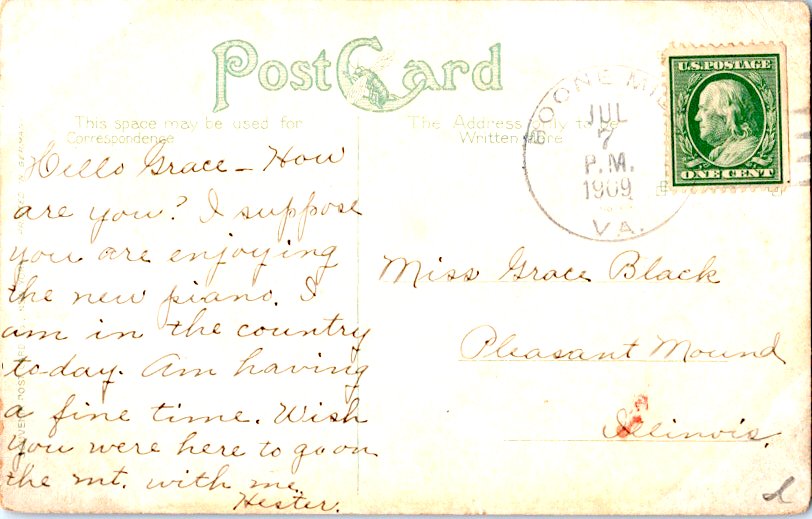 Post Card
This space may be used for
Correspondence
The Address only to be
Written Here
U.S. POSTAGE
ONE CENT
BOONE MILL
JUL
7
P.M.
1909
VA.
Hello Grace - How
are you? I suppose
you are enjoying
the new piano. I
am in the country
to-day. Am having
a fine time. Wish
you were here to go on
the mt. with me.
Hester.
Miss Grace Black
Pleasant Mound
Illinois.